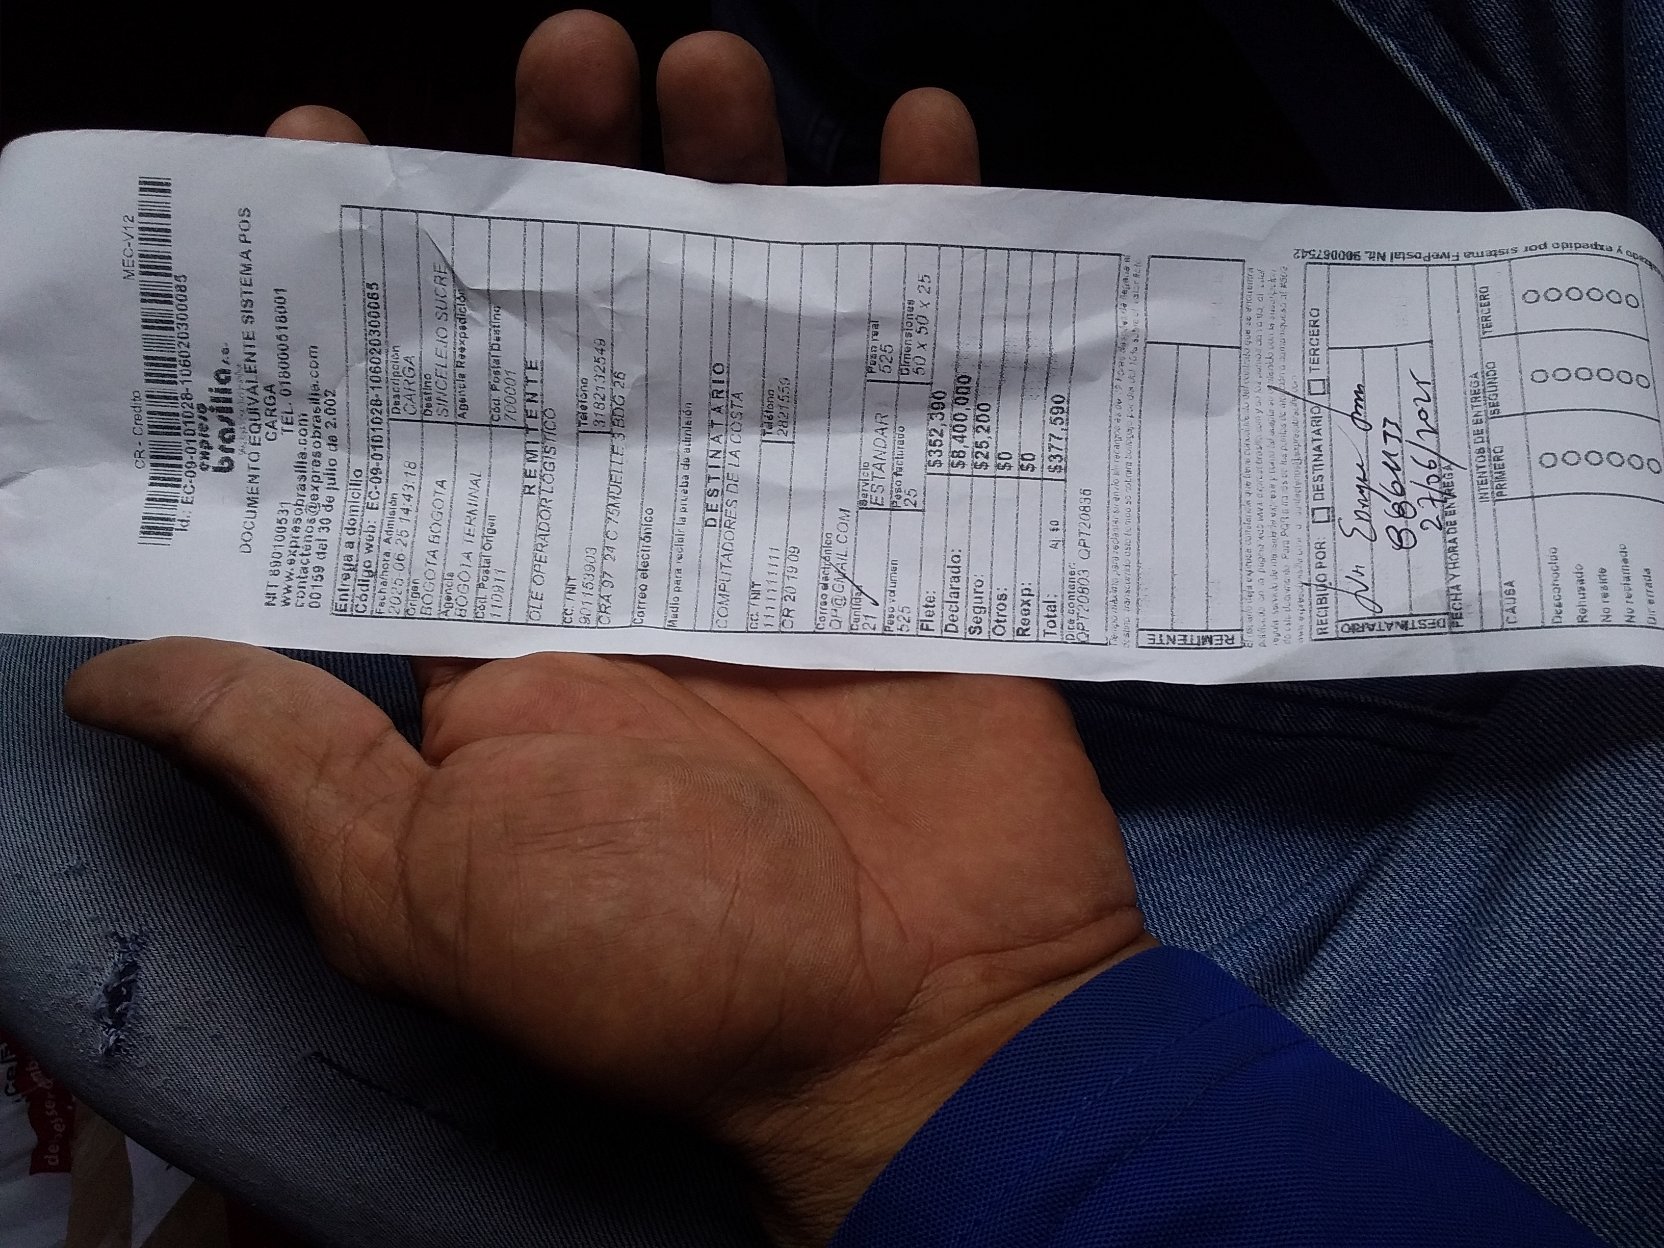 CR - Credito
MEC-V12
Id.: EC-09-0101028-106020300065
expreso
brasilia s.a.
DOCUMENTO EQUIVALENTE SISTEMA POS
CARGA
NIT 890100531
TEL- 018000518001
www.expresobrasilia.com
contactenos@expresobrasilia.com
00159 del 30 de julio de 2.002
Entrega a domicilio
Código web: EC-09-0101028-106020300065
Fecha/hora Admisión
Descripción
2025-06-25 14:43:18
CARGA
Origen
Destino
BOGOTA BOGOTA
SINCELEJO SUCRE
Agencia
Agencia Reexpedición
BOGOTA TERMINAL
Cód. Postal Origen
Cód. Postal Destino
110911
700001
REMITENTE
OLE OPERADOR LOGISTICO
CC. / NIT
Teléfono
901153903
3182132549
CRA 97 24 C 75MUELLE 3 BDG 26
Correo electrónico
Medio para recibir la prueba de admisión
DESTINATARIO
COMPUTADORES DE LA COSTA
CC. / NIT
Teléfono
11111111111
2821559
CR 20 19 09
Correo electrónico
QP@GMAIL.COM
Cantidad
Servicio
Peso real
21
ESTANDAR
525
Peso volumen
Peso facturado
Dimensiones
525
25
50 X 50 X 25
Flete:
$352,390
Declarado:
$8,400,000
Seguro:
$25,200
Otros:
$0
Reexp:
$0
Total:
Aj $0
$377,590
Dice contener:
QPT20803 QPT20836
REMITENTE
RECIBIDO POR: DESTINATARIO TERCERO
DESTINATARIO
27/06/2025
FECHA Y HORA DE ENTREGA
INTENTOS DE ENTREGA
CAUSA
PRIMERO
SEGUNDO
TERCERO
Desconocido
Rehusado
No reside
No reclamado
Dir. errada
y expedido por sistema FivePostal Nit. 900087542